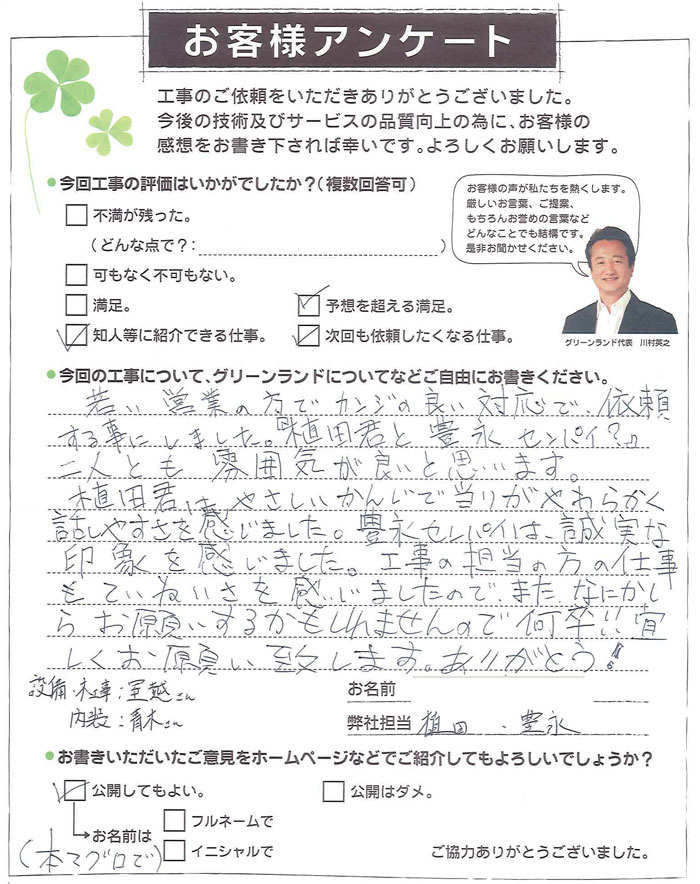 お客様アンケート
工事のご依頼をいただきありがとうございました。
今後の技術及びサービスの品質向上の為に、お客様の
感想をお書き下されば幸いです。よろしくお願いします。
今回工事の評価はいかがでしたか?(複数回答可)
不満が残った。
(どんな点で?: )
可もなく不可もない。
満足。
予想を超える満足。
知人等に紹介できる仕事。
次回も依頼したくなる仕事。
お客様の声が私たちを熱くします。
厳しいお言葉、ご提案、
もちろんお誉めの言葉など
どんなことでも結構です。
是非お聞かせください。
グリーンランド代表 川村英之
今回の工事について、グリーンランドについてなどご自由にお書きください。
若い営業の方でカンジの良い対応で、依頼
する事にしました。『植田君と豊永センパイ?』
二人とも雰囲気が良いと思います。
植田君は、やさしいかんじで当りがやわらかく
話しやすさを感じました。豊永センパイは、誠実な
印象を感じました。工事の担当の方の仕事
もていねいさを感じましたので、また、なにかし
らお願いするかもしれませんので何卒!!宜
しくお願い致します。ありがとう!
設備・木工事:室越さん
内装:青木さん
お名前
弊社担当 植田・豊永
お書きいただいたご意見をホームページなどでご紹介してもよろしいでしょうか?
公開してもよい。
公開はダメ。
お名前は
フルネームで
イニシャルで
(本マグロで)
ご協力ありがとうございました。